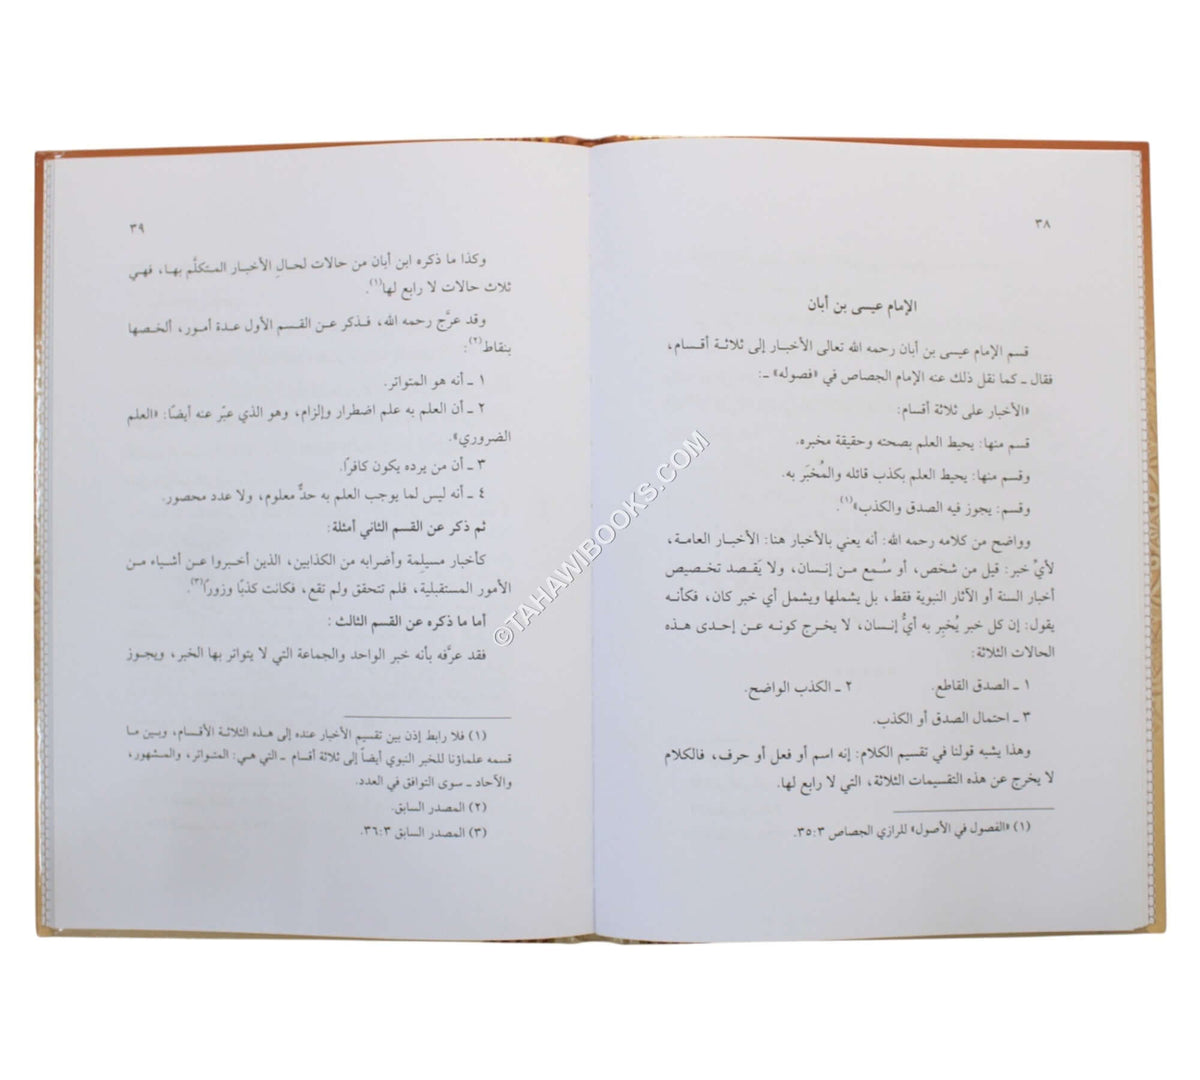 ٣٨
الإمام عيسى بن أبان
قسم الإمام عيسى بن أبان رحمه الله تعالى الأخبار إلى ثلاثة أقسام،
فقال ـ كما نقل ذلك عنه الإمام الجصاص في «فصوله» ـ:
«الأخبار على ثلاثة أقسام:
قسم منها: يحيط العلم بصحته وحقيقة مخبره.
وقسم منها: يحيط العلم بكذب قائله والمُخبَر به.
وقسم: يجوز فيه الصدق والكذب»(١).
وواضح من كلامه رحمه الله: أنه يعني بالأخبار هنا: الأخبار العامة،
لأيِّ خبر: قيل من شخص، أو سُمع من إنسان، ولا يَقصد تخصيص
أخبار السنة أو الآثار النبوية فقط، بل يشملها ويشمل أي خبر كان، فكأنه
يقول: إن كل خبر يُخبِر به أيُّ إنسان، لا يخرج كونه عن إحدى هذه
الحالات الثلاثة:
١ ـ الصدق القاطع. ٢ ـ الكذب الواضح.
٣ ـ احتمال الصدق أو الكذب.
وهذا يشبه قولنا في تقسيم الكلام: إنه اسم أو فعل أو حرف، فالكلام
لا يخرج عن هذه التقسيمات الثلاثة، التي لا رابع لها.
(١) «الفصول في الأصول» للرازي الجصاص ٣:٣٥.
٣٩
وكذا ما ذكره ابن أبان من حالات لحالِ الأخبار المتكلَّم بها، فهي
ثلاث حالات لا رابع لها(١).
وقد عرَّج رحمه الله، فذكر عن القسم الأول عدة أمور، ألخصها
بنقاط(٢):
١ ـ أنه هو المتواتر.
٢ ـ أن العلم به علم اضطرار وإلزام، وهو الذي عبّر عنه أيضًا: «العلم
الضروري».
٣ ـ أن من يرده يكون كافرًا.
٤ ـ أنه ليس لما يوجب العلم به حدٌّ معلوم، ولا عدد محصور.
ثم ذكر عن القسم الثاني أمثلة:
كأخبار مسيلمة وأضرابه من الكذابين، الذين أخبروا عن أشياء من
الأمور المستقبلية، فلم تتحقق ولم تقع، فكانت كذبًا وزورًا(٣).
أما ما ذكره عن القسم الثالث:
فقد عرَّفه بأنه خبر الواحد والجماعة التي لا يتواتر بها الخبر، ويجوز
(١) فلا رابط إذن بين تقسيم الأخبار عنده إلى هذه الثلاثة الأقسام، وبين ما
قسمه علماؤنا للخبر النبوي أيضاً إلى ثلاثة أقسام ـ التي هي: المتواتر، والمشهور،
والآحاد ـ سوى التوافق في العدد.
(٢) المصدر السابق.
(٣) المصدر السابق ٣:٣٦.
©TAHAWIBOOKS.COM